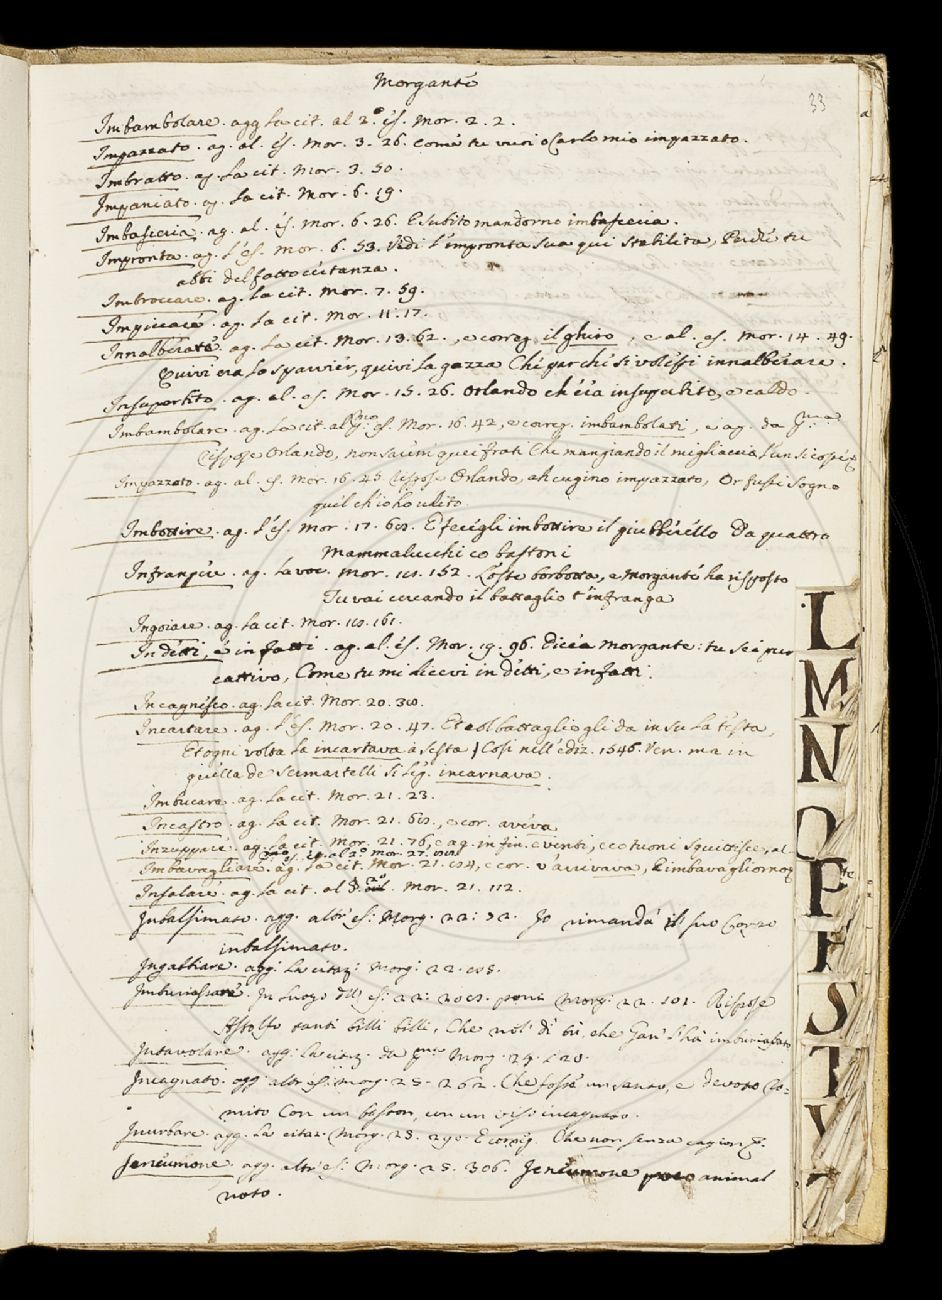 Morgante
33
Imbambolare. agg. la cit. al 2.° es. Mor. 2. 2.
Impazzato. ag. al. es. Mor. 3. 26. come tu vuoi o Carlo mio impazzato.
Imbratto. ag. la cit. Mor. 3. 50.
Impaniato. ag. la cit. Mor. 6. 19.
Imbasceria. ag. al. es. Mor. 6. 26. E subito mandorno imbasceria.
Impronta. ag. l'es. Mor. 6. 53. Vedi l'impronta sua qui stabilita, Perchè tu
abbi del fatto certanza.
Imbroccare. ag. la cit. Mor. 7. 59.
Impiccare. ag. la cit. Mor. 11. 17.
Innalberare. ag. la cit. Mor. 13. 62., e correg. il ghiro, e al. es. Mor. 14. 49.
Quivi era lo sparvier, quivi la gazza Che par che si volessi innalberare.
Insuperbito. ag. al. es. Mor. 15. 26. Orlando ch'era insuperbito, e caldo.
Imbambolare. ag. la cit. al p.mo es. Mor. 16. 42, e correg. imbambolati, e ag. da
Rispose Orlando, non sarem quei frati Che mangiando il migliaccio l'un si cosse
Impazzato. ag. al. es. Mor. 16. 45 Rispose Orlando, ah cugino impazzato, Or fussi sogno
quel ch'io ho udito.
Imbottire. ag. l'es. Mor. 17. E fecegli imbottire il giubberello Da quattro
Mammalucchi co bastoni
Infrangere. ag. la voc. Mor. 18. 152. L'oste borbotta, e Morgante ha risposto
Tu vai cercando il battaglio t'infranga
Ingoiare. ag. la cit. Mor. 18. 161.
In detti, e in fatti. ag. al. es. Mor. 19. 96. Dicea Morgante: tu se' pur
cattivo, Come tu mi dicevi in detti, e in fatti.
Incagnesco. ag. la cit. Mor. 20. 38.
Incartare. ag. l'es. Mor. 20. 47. Et col battaglio gli da in su la testa,
Et ogni volta la incartava à sesta. Così nell'ediz. 1546. Ven. ma in
quella de Sermartelli si leg. incarnava.
Imbucare. ag. la cit. Mor. 21. 23.
Incastro. ag. la cit. Mor. 21. 68., e cor. aveva
Inzuppare. ag. la cit. Mor. 21. 76, e ag. in fin. e venti, e e tuoni
Imbavagliare. ag. la cit. Mor. 21. 84, e cor. v'arrivava, E imbavagliorno
Insalare. ag. la cit. al 3.° Mor. 21. 112.
Imbalsimato. agg. altr'es: Morg: 22: 32. Io rimandai il suo Corpo
imbalsimato.
Ingabbiare. agg: la citaz: Morg: 22. 88.
Imburiassare. In luogo dell'es: 22: 208. poni Morg: 22. 101. Rispose
Astolfo tanti billi billi, Che nol' dì tu, che Gan' l'ha imburiassato
Intavolare. agg: la citaz. da Morg. 24. 120.
Incagnato. agg. altr'es: Morg. 25. 262. Che fosse un santo, e devoto Ro-
mito Con un baston, con un viso incagnato.
Inurbare. agg. la citaz. Morg. 25. 290. E correg. Che non senza cagion
Jeneumone. agg. altr'es: Morg. 25. 306. Jeneumone poco animal
noto.
L
M
N
O
P
R
S
T
V
Z